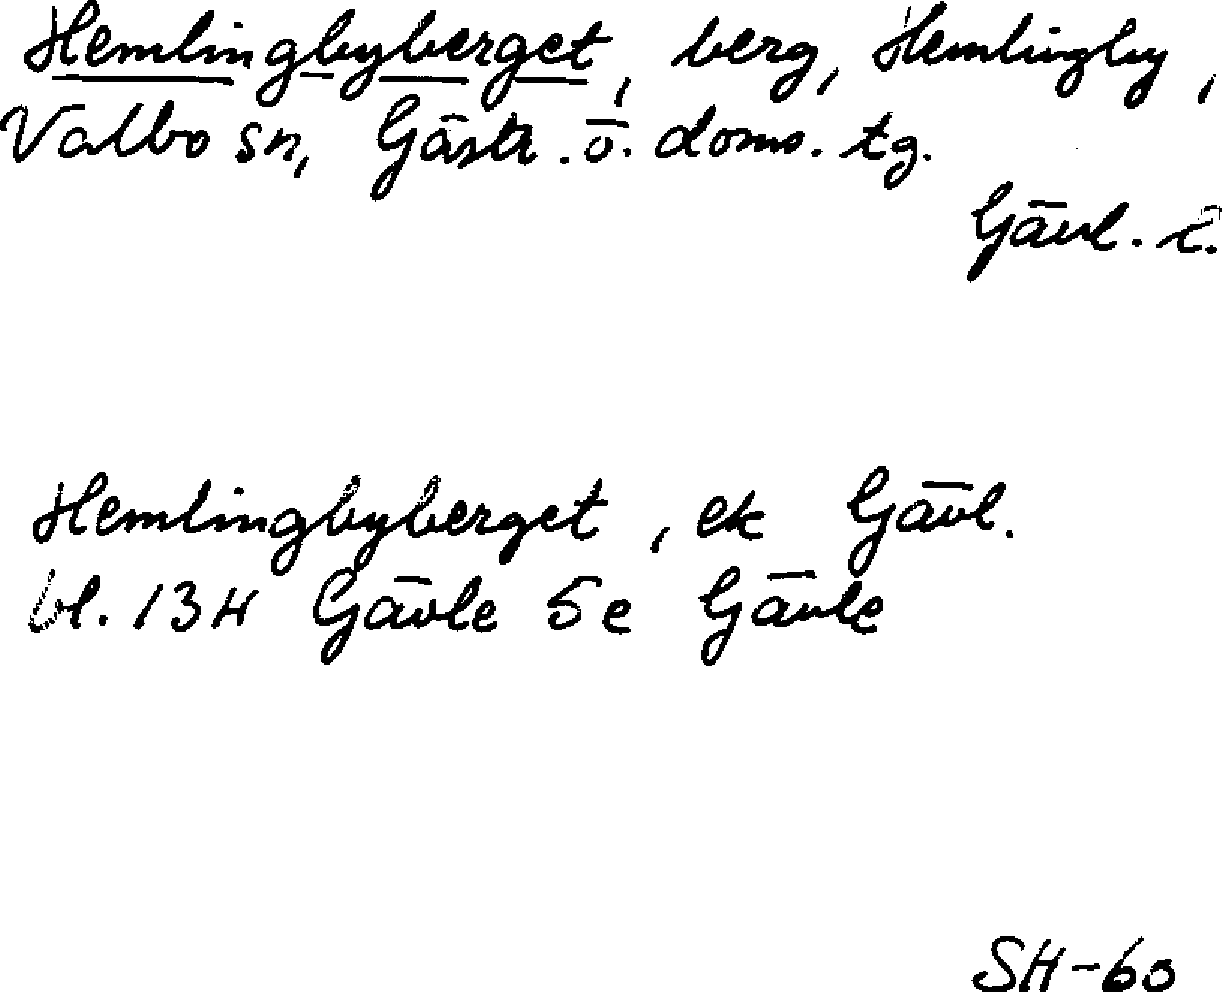 Hemlingbyberget, berg, Hemlingby,
Valbo sn, Gästr. ö. doms. tg.
Gävl. l.
Hemlingbyberget, ek Gävl.
bl. 13H Gävle 5e Gävle
SH-60